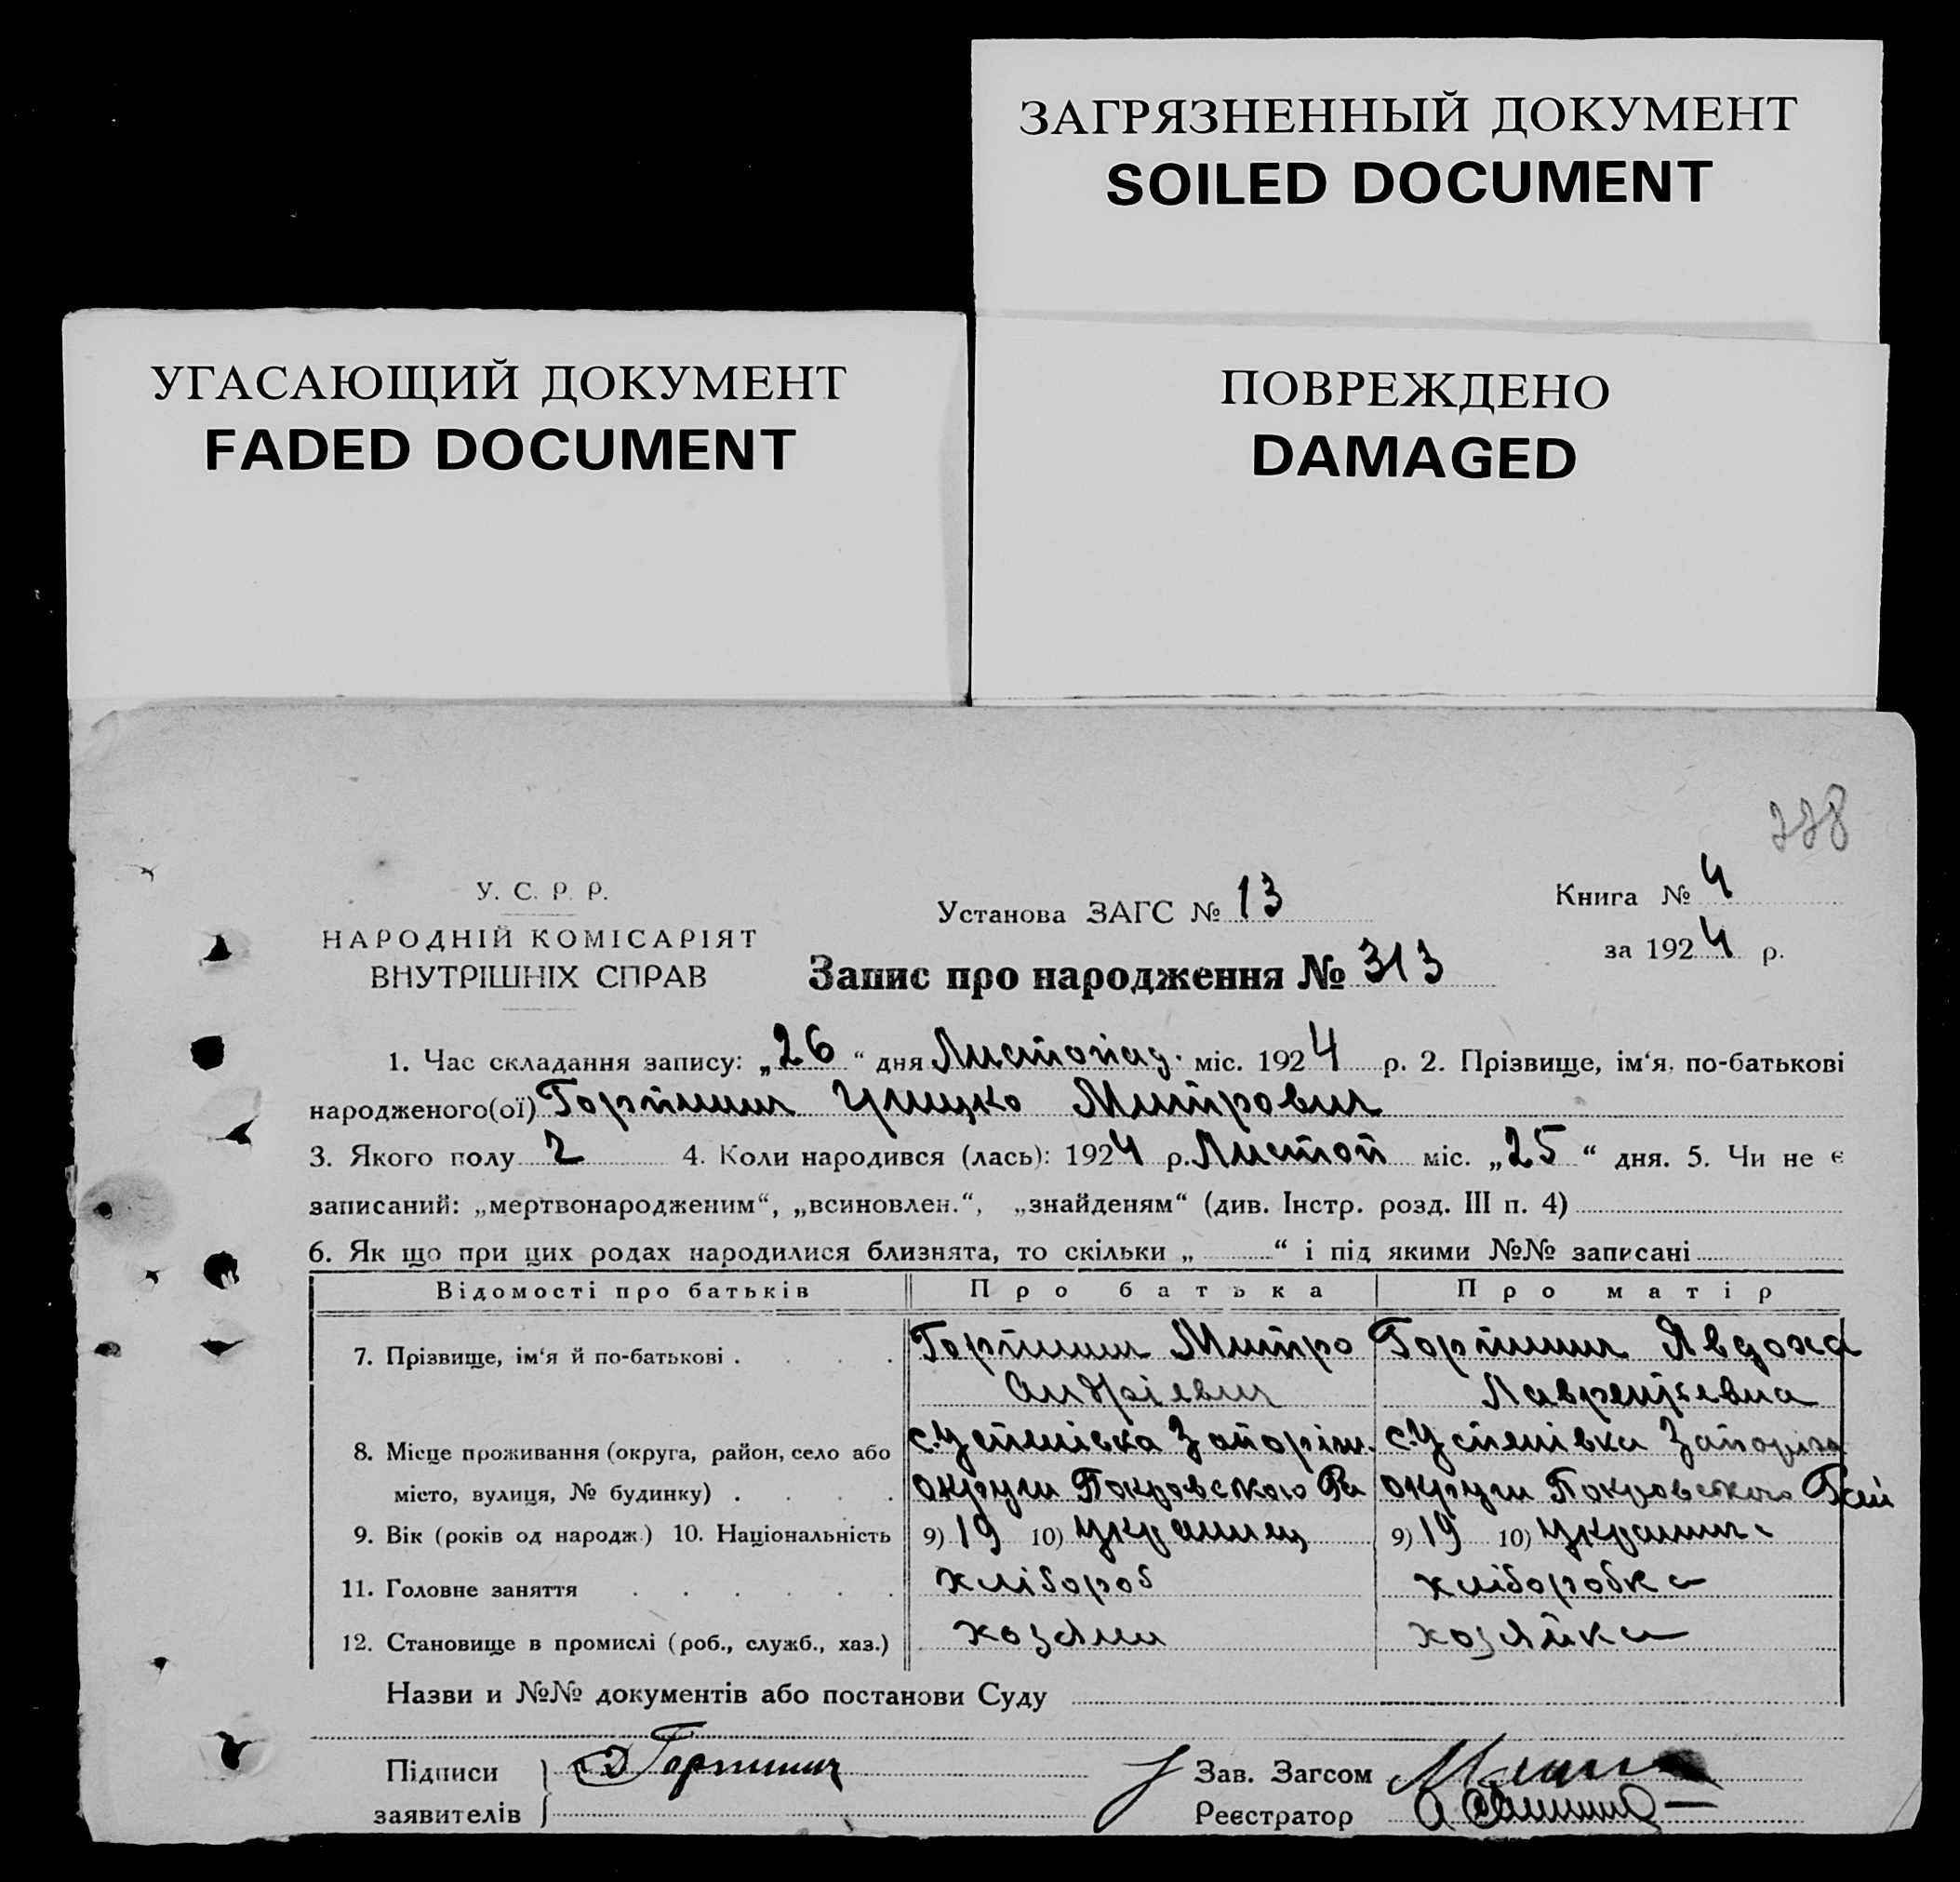 ЗАГРЯЗНЕННЫЙ ДОКУМЕНТ
SOILED DOCUMENT
УГАСАЮЩИЙ ДОКУМЕНТ
FADED DOCUMENT
ПОВРЕЖДЕНО
DAMAGED
У. С. Р. Р.
НАРОДНІЙ КОМІСАРІЯТ
ВНУТРІШНІХ СПРАВ
Установа ЗАГС № 13
Книга № 4
за 1924 р.
Запис про народження № 313
1. Час складання запису: „26“ дня Листопад. міс. 1924 р. 2. Прізвище, ім‘я, по-батькові
народженого(ої) Горпинич Грицко Митрович
3. Якого полу 4. Коли народився (лась): 1924 р. Листоп міс. „25“ дня. 5. Чи не є
записаний: „мертвонародженим“, „всиновлен.“, „знайденям“ (див. Інстр. розд. III п. 4)
6. Як що при цих родах народилися близнята, то скільки „ “ і під якими №№ записані
Відомості про батьків Про батька Про матір
7. Прізвище, ім‘я й по-батькові . . . . Горпинич Митро Горпинич Явдоха
Андрієвич Лаврентієвна
8. Місце проживання (округа, район, село або с. Успенівка Запоріж. с. Успенівка
місто, вулиця, № будинку) . . . . округи Покровського Ра округи Покровського Рай
9. Вік (років од народж.) 10. Національність 9) 19 10) Українец 9) 19 10)
11. Головне заняття . . . . . . хлібороб хліборобка
12. Становище в промислі (роб., служб., хаз.) хозяин хозяйка
Назви и №№ документів або постанови Суду
Підписи Горпинич Зав. Загсом
заявителів Реєстратор